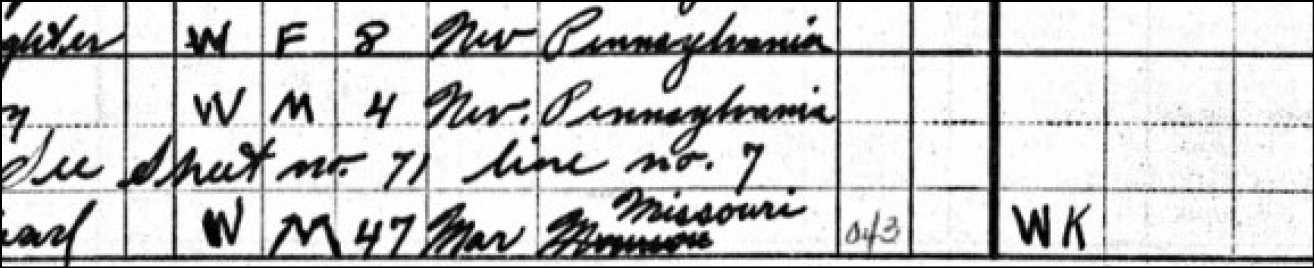 ghter W F 8 Nev Pennsylvania
n W M 4 Nev. Pennsylvania
See Sheet no. 71 line no. 7
W M 47 Mar Missouri 043 WK